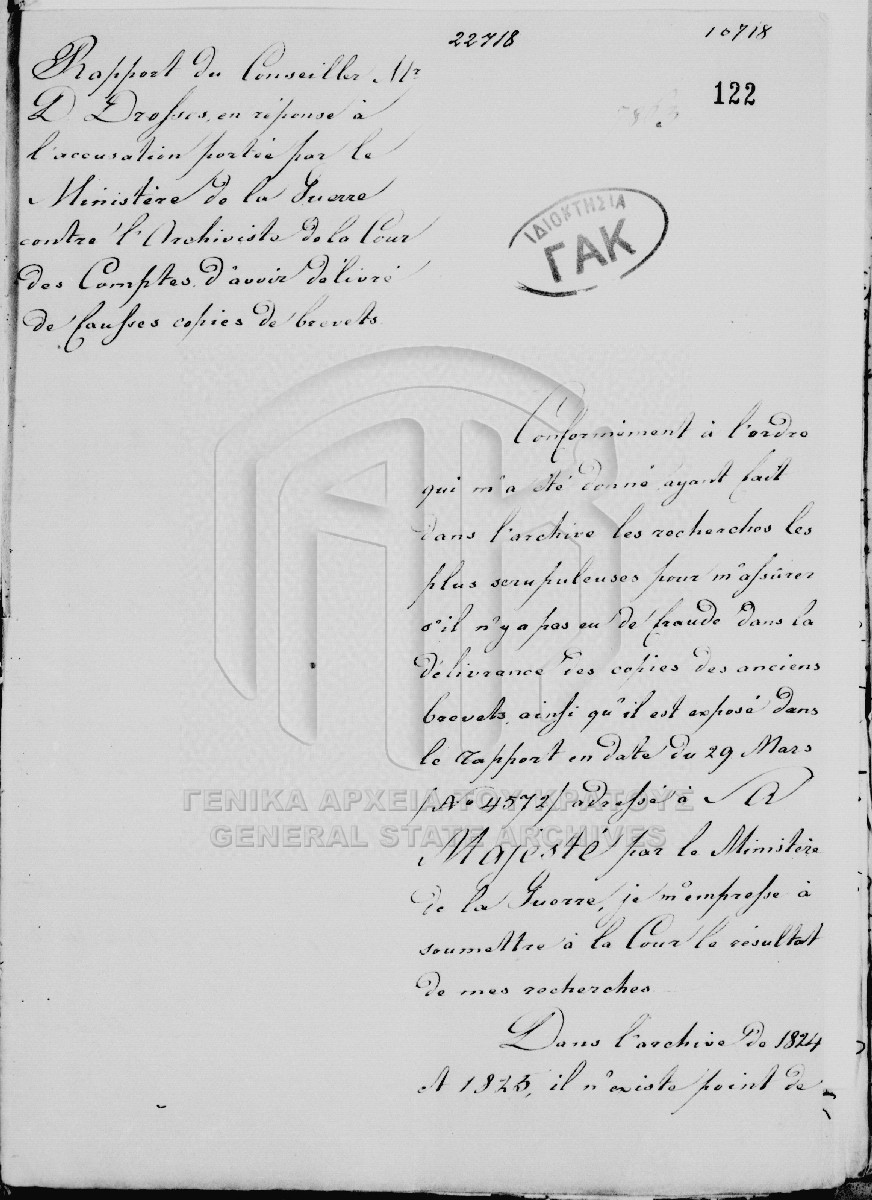 22718
10718
122
Rapport du Conseiller Mr
D Drosses, en réponse à
l'accusation portée par le
Ministère de la Guerre
contre l'Archiviste de la Cour
des Comptes, d'avoir délivré
de fausses copies de brevets
ΙΔΙΟΚΤΗΣΙΑ
ΓΑΚ
Conformément à l'ordre
qui m'a été donné, ayant fait
dans l'archive les recherches les
plus scrupuleuses pour m'assûrer
s'il n'y a pas eu de fraude dans la
délivrance des copies des anciens
brevets, ainsi qu'il est exposé dans
le rapport en date du 29 Mars
/No 4572/ adressé à SA
Majésté par le Ministère
de la Guerre, je m'empresse à
soumettre à la Cour le résultat
de mes recherches
Dans l'archive de 1824
et 1825, il n'existe point de
ΓΕΝΙΚΑ ΑΡΧΕΙΑ ΤΟΥ ΚΡΑΤΟΥΣ
GENERAL STATE ARCHIVES